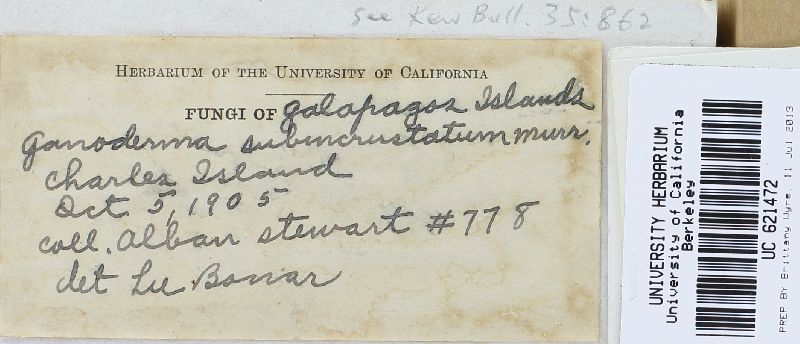 see Kew Bull. 35:862
HERBARIUM OF THE UNIVERSITY OF CALIFORNIA
FUNGI OF galapagos Islands
Ganoderma subincrustatum murr.
Charles Island
Oct 5, 1905
coll. Alban stewart #778
det Lee Bonar
UNIVERSITY HERBARIUM
University of California
Berkeley
UC 621472
PREP BY Brittany Wyre, 11 Jul 2013